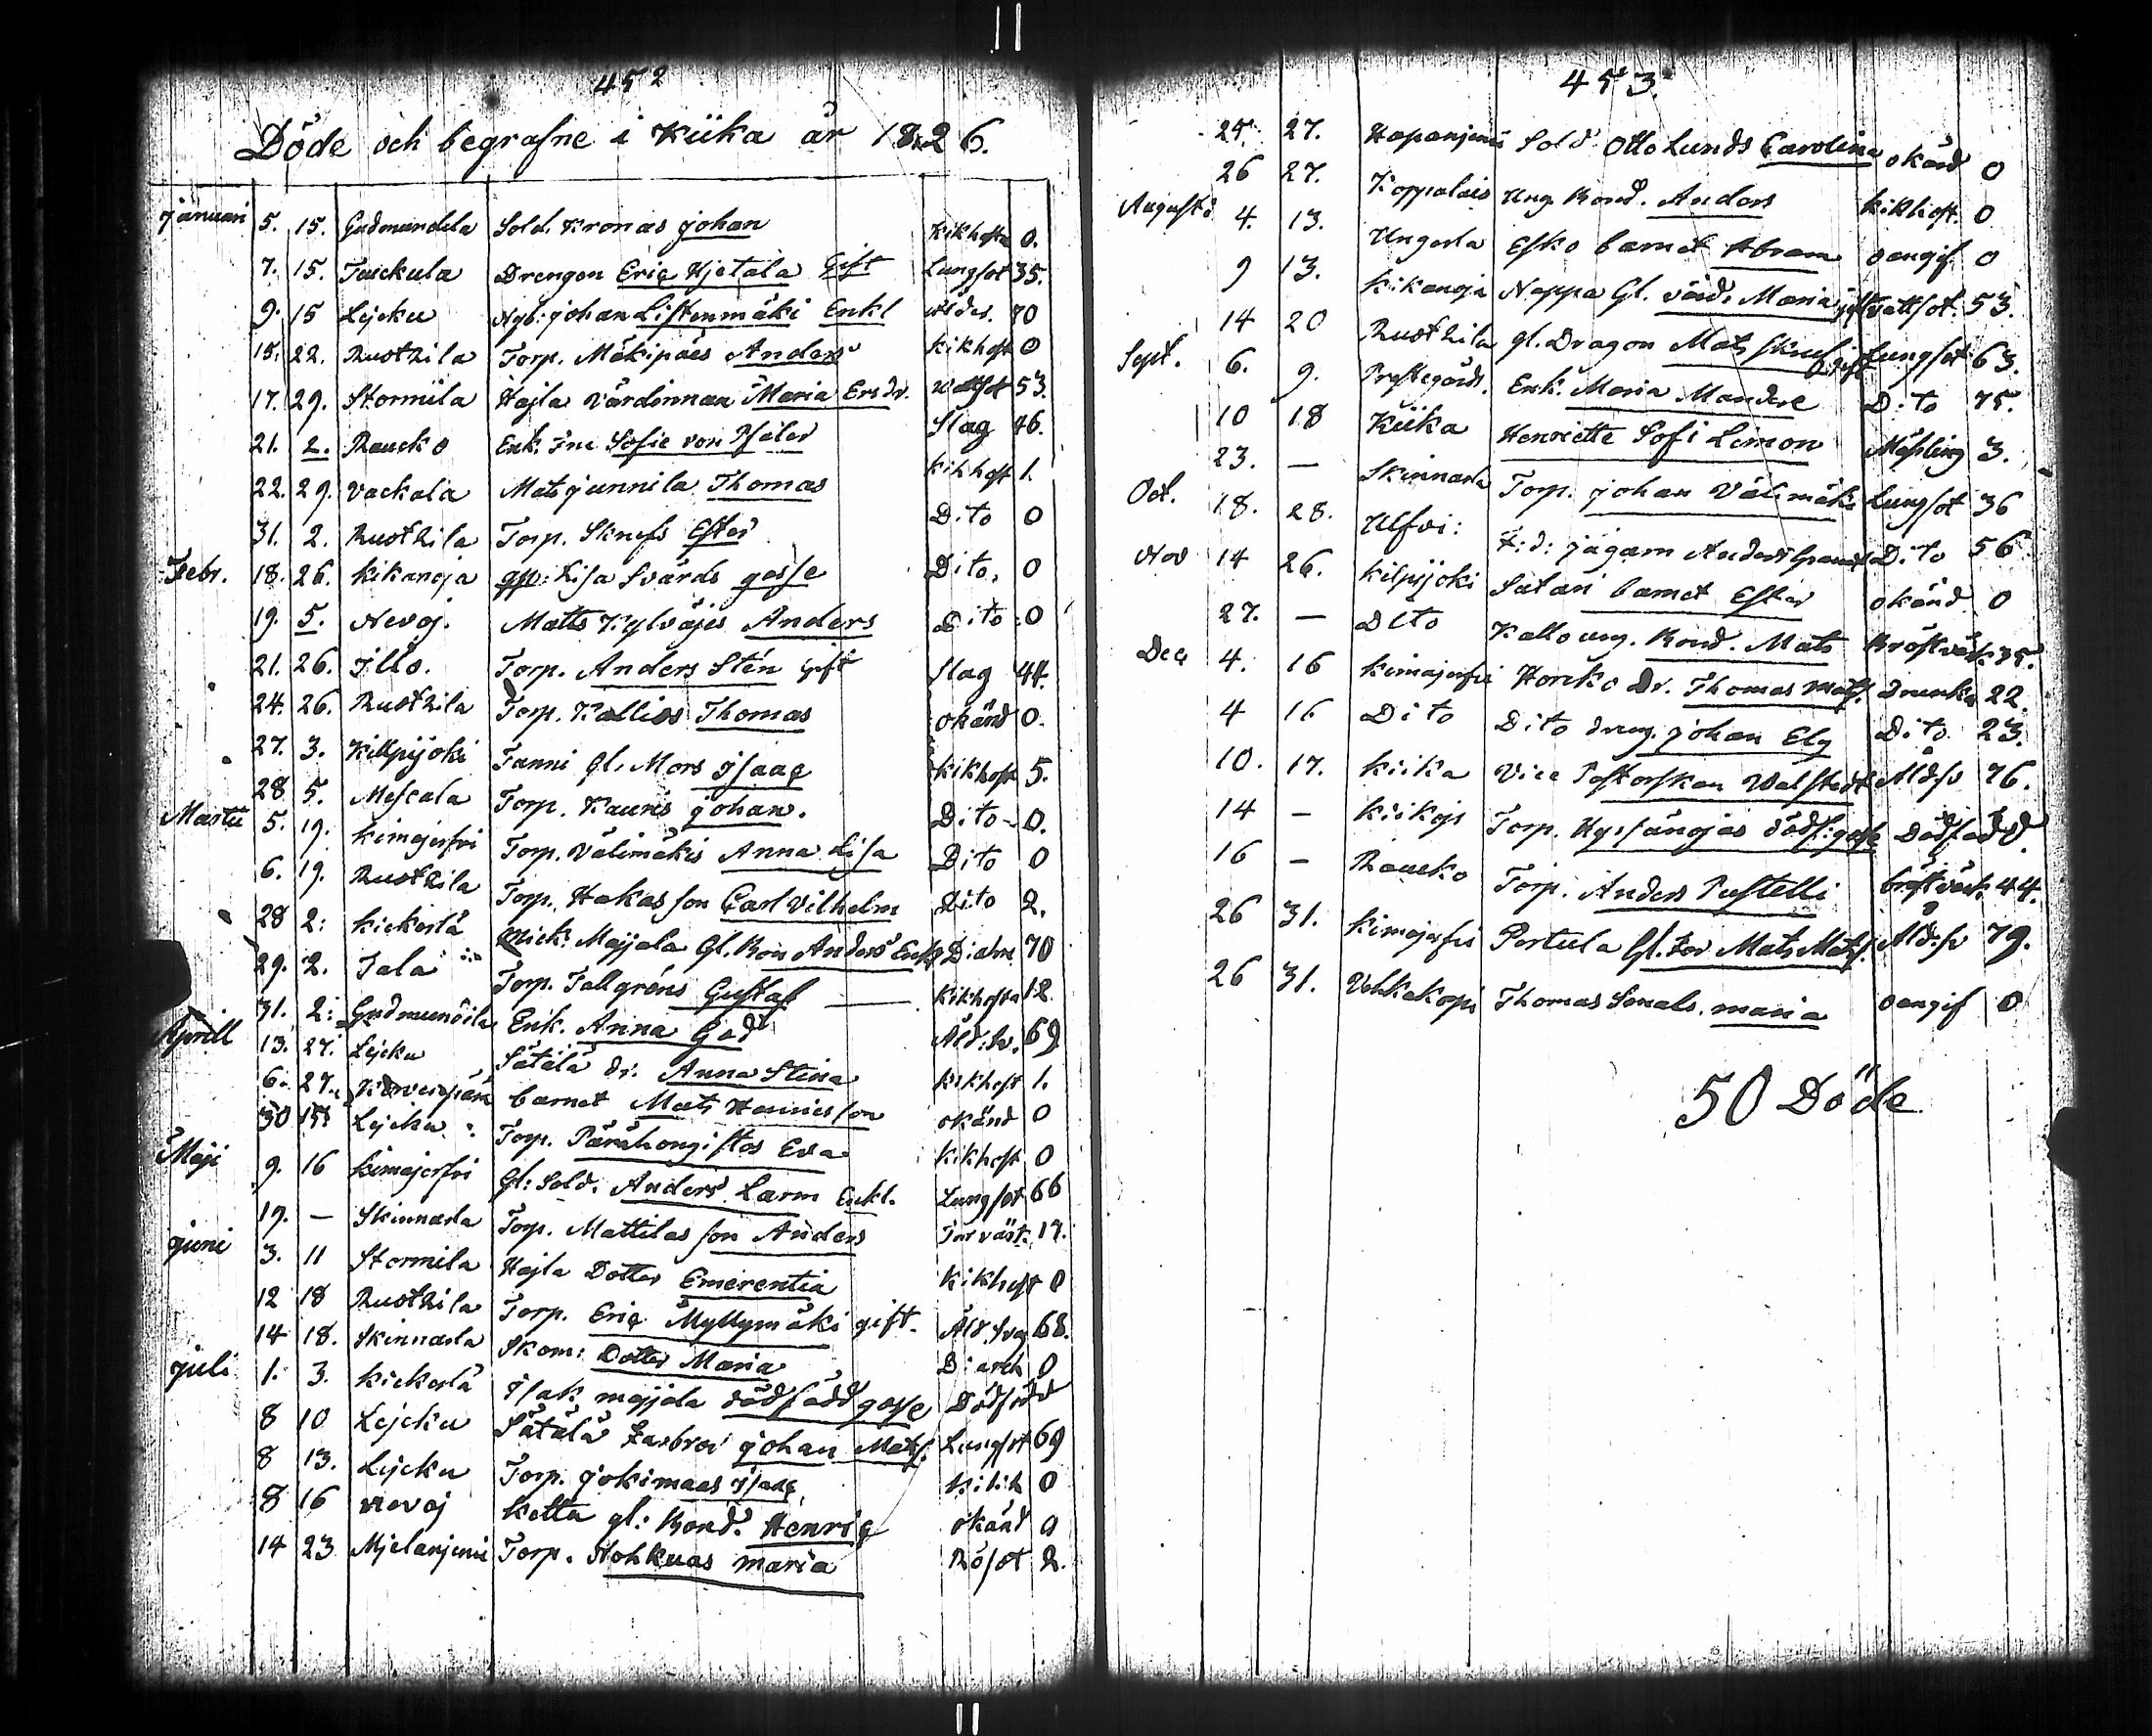 452
Döde och begrafne i Kiika år 1826.
Januari 5. 15. Gudmundila Sold. Kronas Johan Kikhosta 0.
7. 15. Juckula Drengen Eric Hjetala Gift Lungsot 35.
9. 15 Lejcku Nyb: Johan Listenmäki Enkl ålder. 70
15. 22. Rusthila Torp. Mäkipäes Anders Kikhost 0
17. 29. Stormila Häjla Värdinnan Maria Ersdr. wattsot 53.
21. 2. Raucko Enk. Fru Sofie von Pfaler Slag 46.
22. 29. Vackala Mats Junnila Thomas Kikhost 1.
31. 2. Rusthila Torp. Skrufs Ester Dito 0
Febr. 18. 26. Kikanoja qp: Lisa Svärds gosse Dito. 0
19. 5. Nevoj. Matts Kylväjes Anders Dito. 0
21. 26. Illo. Torp. Anders Stén gift Slag 44.
24. 26. Rusthila Torp. Kallios Thomas okänd 0.
27. 3. Killpijoki Fanni Gl. Mors Isaac Kikhost 5.
28 5. Mescala Torp. Kauris Johan. Dito 0.
Martii 5. 19. Kimajerfvi Torp. Välimäkis Anna Lisa Dito 0
6. 19. Rusthila Torp. Hakas son Carl Vilhelm Dito 2.
28 2: Kickerlä Mick: Majjala Gl. Bon Anders Enkl Diahre 70
29. 2. Jala Torp. Tallgréns Gustaf — Kikhosta 12.
31. 2: Gudmundila Enk. Anna God Åld:sv. 69
Aprill 13. 27. Lejcku Sätälä dr. Anna Stina Kikhost 1.
6. 27. barnet Mats Hannisson okänd 0
30 15 Lejcku Torp. Pärähongistos Eva Kikhost 0
Maji 9. 16 Kimajerfvi Gl: Sold. Anders Larm Enkl. Lungsot 66
19. — Skinnarla Torp. Mattilas son Anders Torrväst. 17.
Juni 3. 11 Stormila Hajla Dotter Emerentia Kikhost 0
12 18 Rusthila Torp. Eric Myllymäki gift. Åld.svg 68.
14 18. Skinnarla Skom: Dotter Maria Diareh 0
Juli 1. 3. Kickerlä Isak majjala dödfödd gosse Dödfödd
8 10 Lejcku Sätälä Farbror Johan Mats. Lungsot 69
8 13. Lejcku Torp. Jokimaas Isaac, Kikh 0
8 16 Nevoj Ketta gl: Bond. Henric okänd 0
14 23 Mjelanjemi Torp. Nohkuas maria Rösot 2.
453.
24. 27. Hapanjemi Sold Otto Lunds Carolina okänd 0
26 27. Koppalais Ung Bond. Anders Kikhost. 0
Augusti 4. 13. Ungerla Esko barnet Abram oangif 0
9 13. Kikanoja Nappa Gl. värd. Maria gift Vattsot. 53.
14 20 Rusthila gl. Dragon Mats Skruf gift Lungsot 63.
Sept. 6. 9. Prestegårds. Enk. Maria Mandere Dito 75.
10 18 Kiika Henriette Sofi Limon Mässling 3.
23. — Skinnarla Torp. Johan Välimäki Lungsot 36
Oct. 18. 28. Ulfvi: F:d: jägarn Anders Grant Dito 56
Nov 14 26. Kilpijoki Satari barnet Ester okänd 0
27. — Dito Kallo ung. Bond. Mats Bröstvärk 35.
Dec 4. 16 Kimajerfvi Horcko Dr. Thomas Mats. Drunka 22.
4 16 Dito Dito dreng. Johan Elg Dito. 23.
10. 17. Kiika Vice Pastorskan Walstedt Åld:sv 76.
14 — Kiikois Torp. Hyrsänojas dödf:gosse Dödfödd.
16 — Raucko Torp. Anders Pustelli bröstvärk 44.
26 31. Kimajerfvi Pertula Gl. Far Mats Mats. Åld:sv 79.
26 31. Vehkakopi Thomas Smals. maria oangif 0
50 Döde